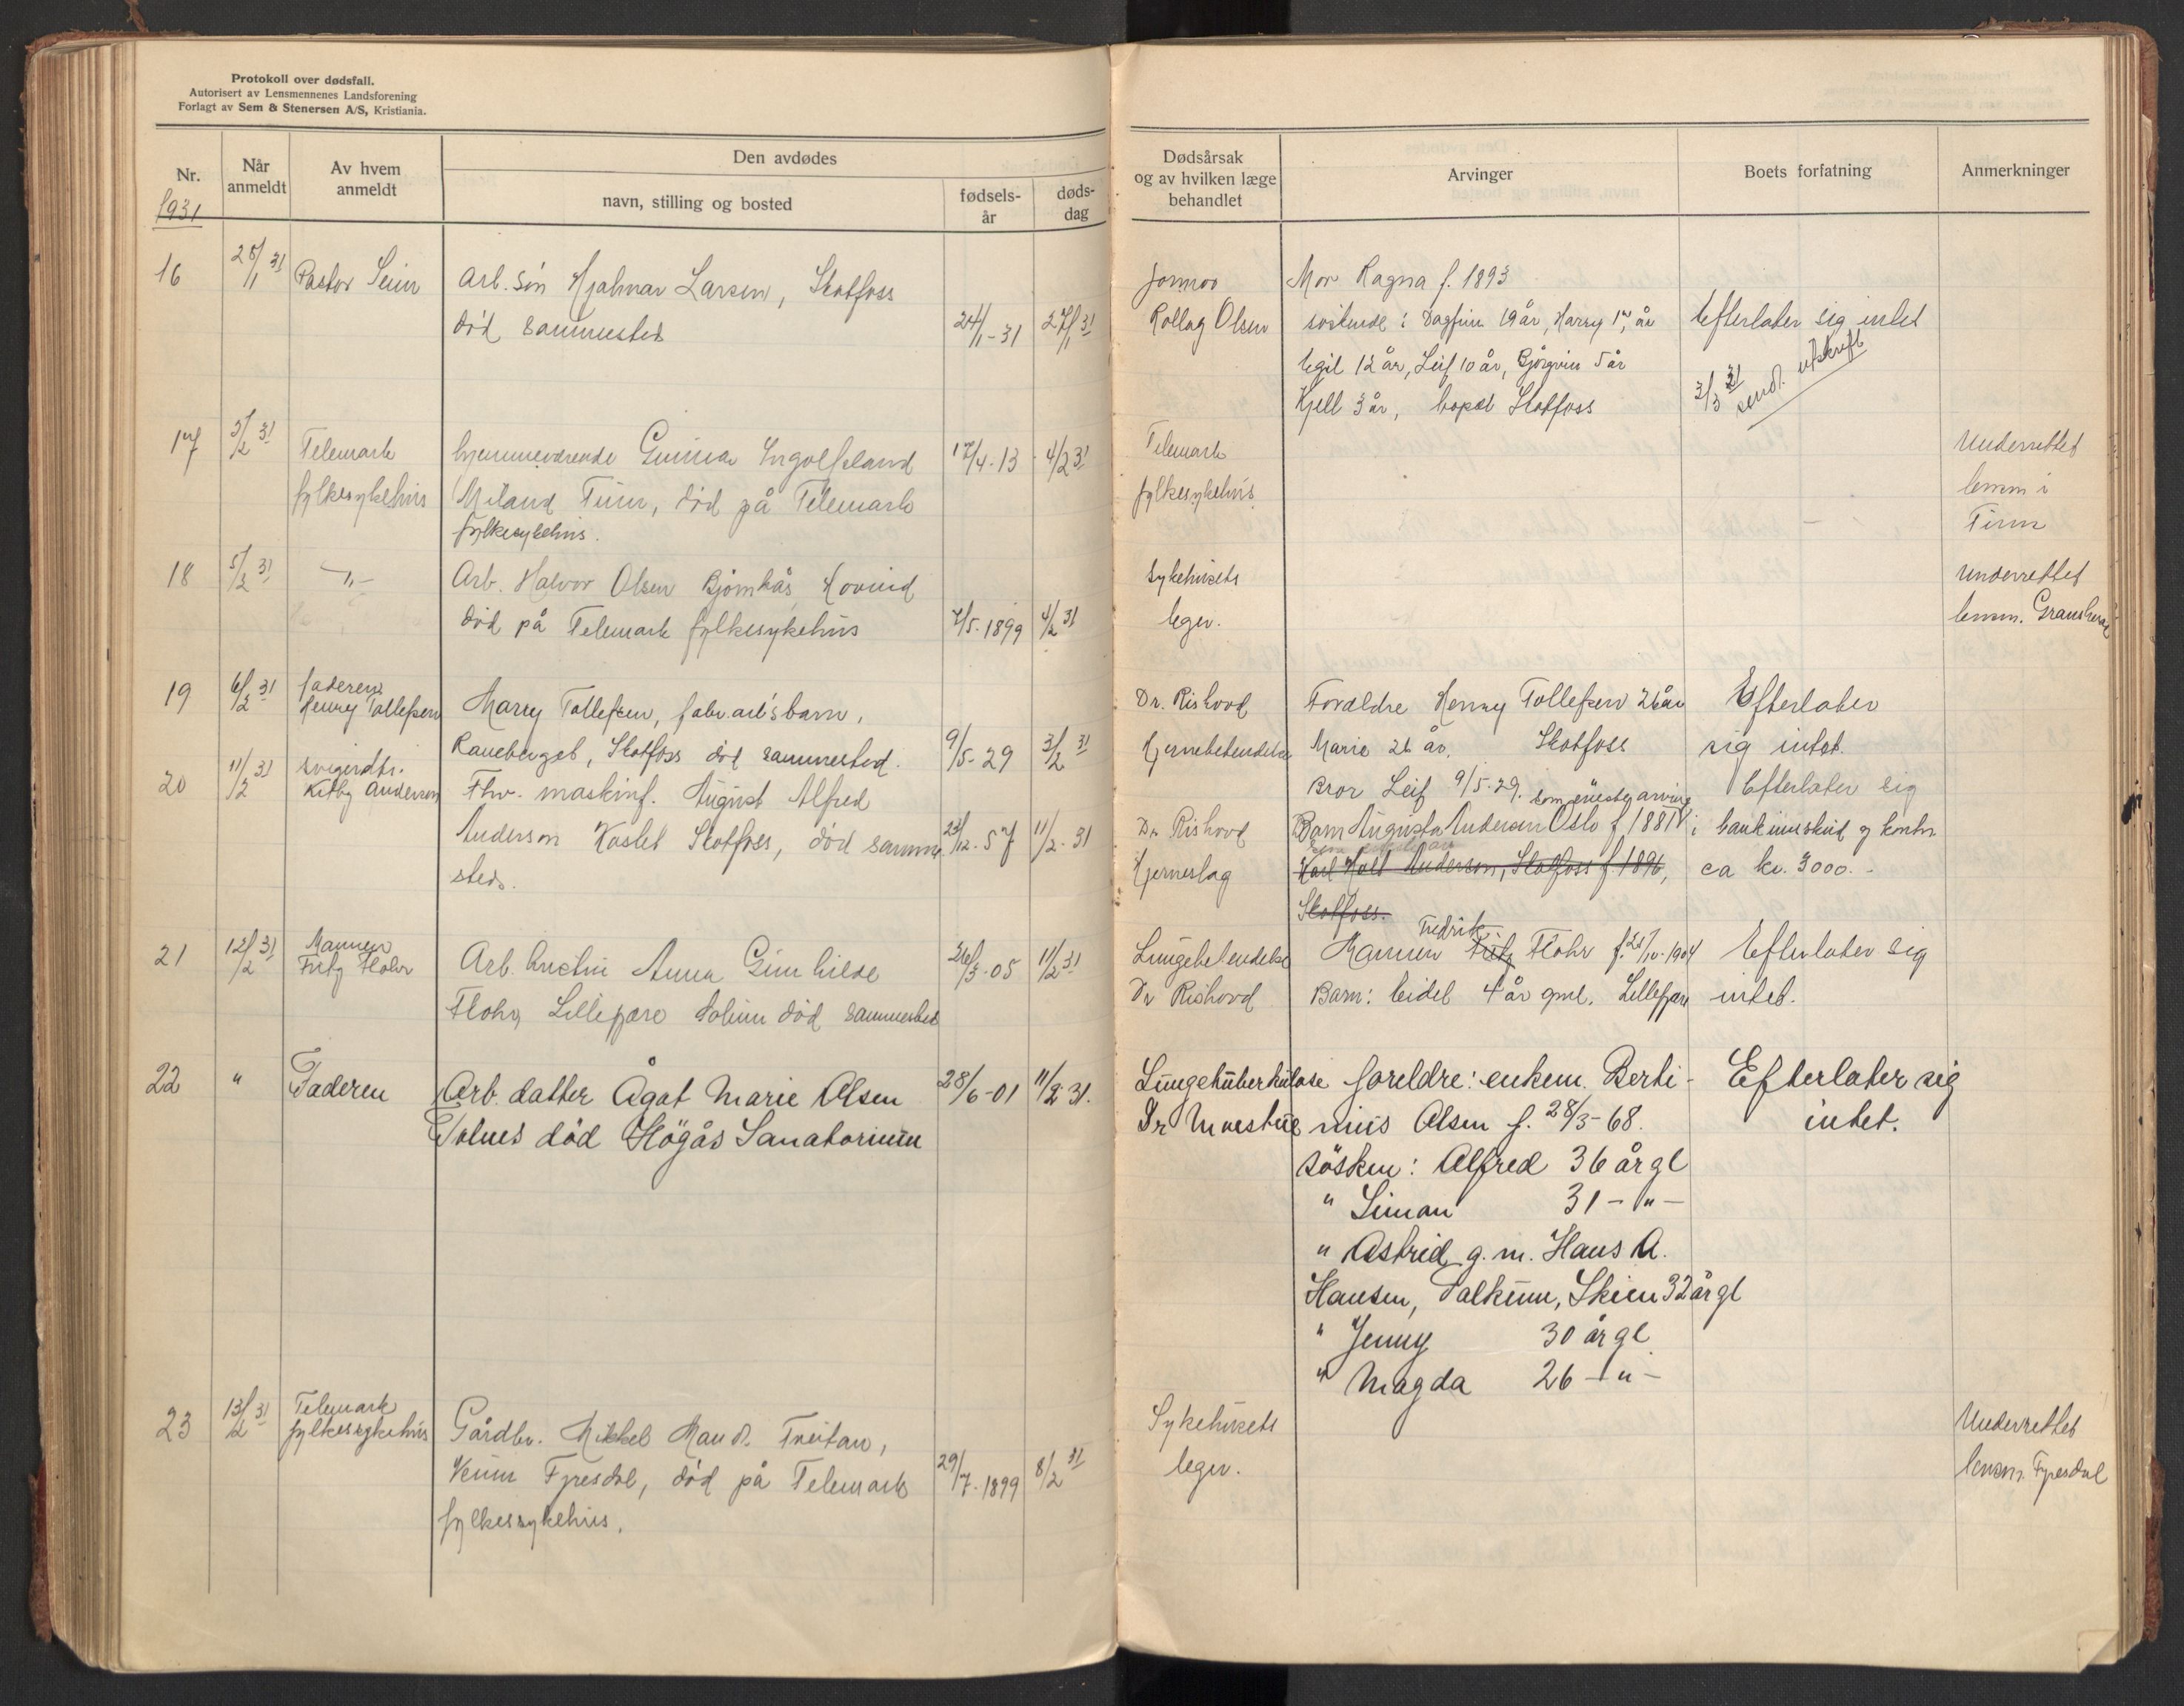 Protokoll over dødsfall.
Autorisert av Lensmennenes Landsforening
Forlagt av Sem & Stenersen A/S, Kristiania.
Nr.
Når anmeldt
Av hvem anmeldt
Den avdødes
navn, stilling og bosted
fødsels-år
døds-dag
Dødsårsak og av hvilken læge behandlet
Arvinger
Boets forfatning
Anmerkninger
1931
16 28/1 31 Pastor Seim Arb. søn Hjalmar Larsen, Skotfoss
død sammesteds 24/1-31 27/1 31
Rollag Olsen
Mor Ragna f. 1893
søskende: Dagfinn 19 år, Harry år
Egil 12 år, Leif 10 år, Bjørgvin 5 år
Kjell 3 år, bopæl Skotfoss
Efterlater sig intet
3/3 31 send. utskrift
17 5/2 31 Telemark fylkesykehus
hjemmeværende Gunnar Ingolfsland 17/4-13 4/2 31
Miland Tinn, død på Telemark
fylkesykehus.
Telemark
fylkesykehus
Underrettet
lensm i
Tinn
18 5/2 31 -"-
Arb. Halvor Olsen Bjørnhås, Hovind
død på Telemark fylkesykehus 7/5-1899 4/2 31
Sykehusets
leger.
Underrettet
lensm. Gransherad
19 6/2 31 faderen Henry Tollefsen
Marry Tollefsen, fabr.arb's barn,
Raneberget, Skotfoss død sammested. 9/5-29 3/2 31
Dr. Rishovd
Hjernebetendelse
Foreldre Henry Tollefsen 26 år
Marie 26 år. Skotfoss
Bror Leif 9/5-29.
Efterlater
sig intet.
20 11/2 31 svigerdtr. Kitty Anderson
Fhv. maskinf. August Alfred
Anderson Kaslet Skotfoss, død samme 23/12-57 11/2-31
steds.
Dr. Rishovd
Hjerneslag
som eneste arving
Barn Augusta Anderson Oslo f 1881
Karl Holt Anderson, Skotfoss f. 1896,
Skotfoss.
Efterlater sig
i bankinnskud og kontr
ca kr. 3000.-
21 12/2 31 Mannen Fritz Flohr
Arb. hustru Anna Gunhilde 26/3-05 11/2 31
Flohr, Lillegjære Solum død sammested
Lungebetendelse
Dr Rishovd
Fredrik
Mannen Fritz Flohr f. 21/10-1904
Barn: Eidel 4 år gml. Lillegjære
Efterlater sig
intet.
22 " Faderen
Arb. datter Ågot Marie Olsen 28/6-01 11/2 31.
Tolnes død Høgås Sanatorium
Lungetuberkulose
Dr Moestue
foreldre: enkem. Berti-
nius Olsen f. 28/3-68.
søsken: Alfred 36 år gl
" Simon 31 -"-
" Astrid g. m. Hans A.
Hansen, Falkum, Skien 32 år gl
" Jenny 30 år gl.
" Magda 26 -"-
Efterlater sig
intet.
23 13/2 31 Telemark fylkesykehus
Gårdbr. Mikkel Man d. Treitan,
Veum Fyresdal, død på Telemark 29/7-1899 8/2 31
fylkessykehus.
Sykehusets
leger.
Underrettet
lensm. Fyresdal